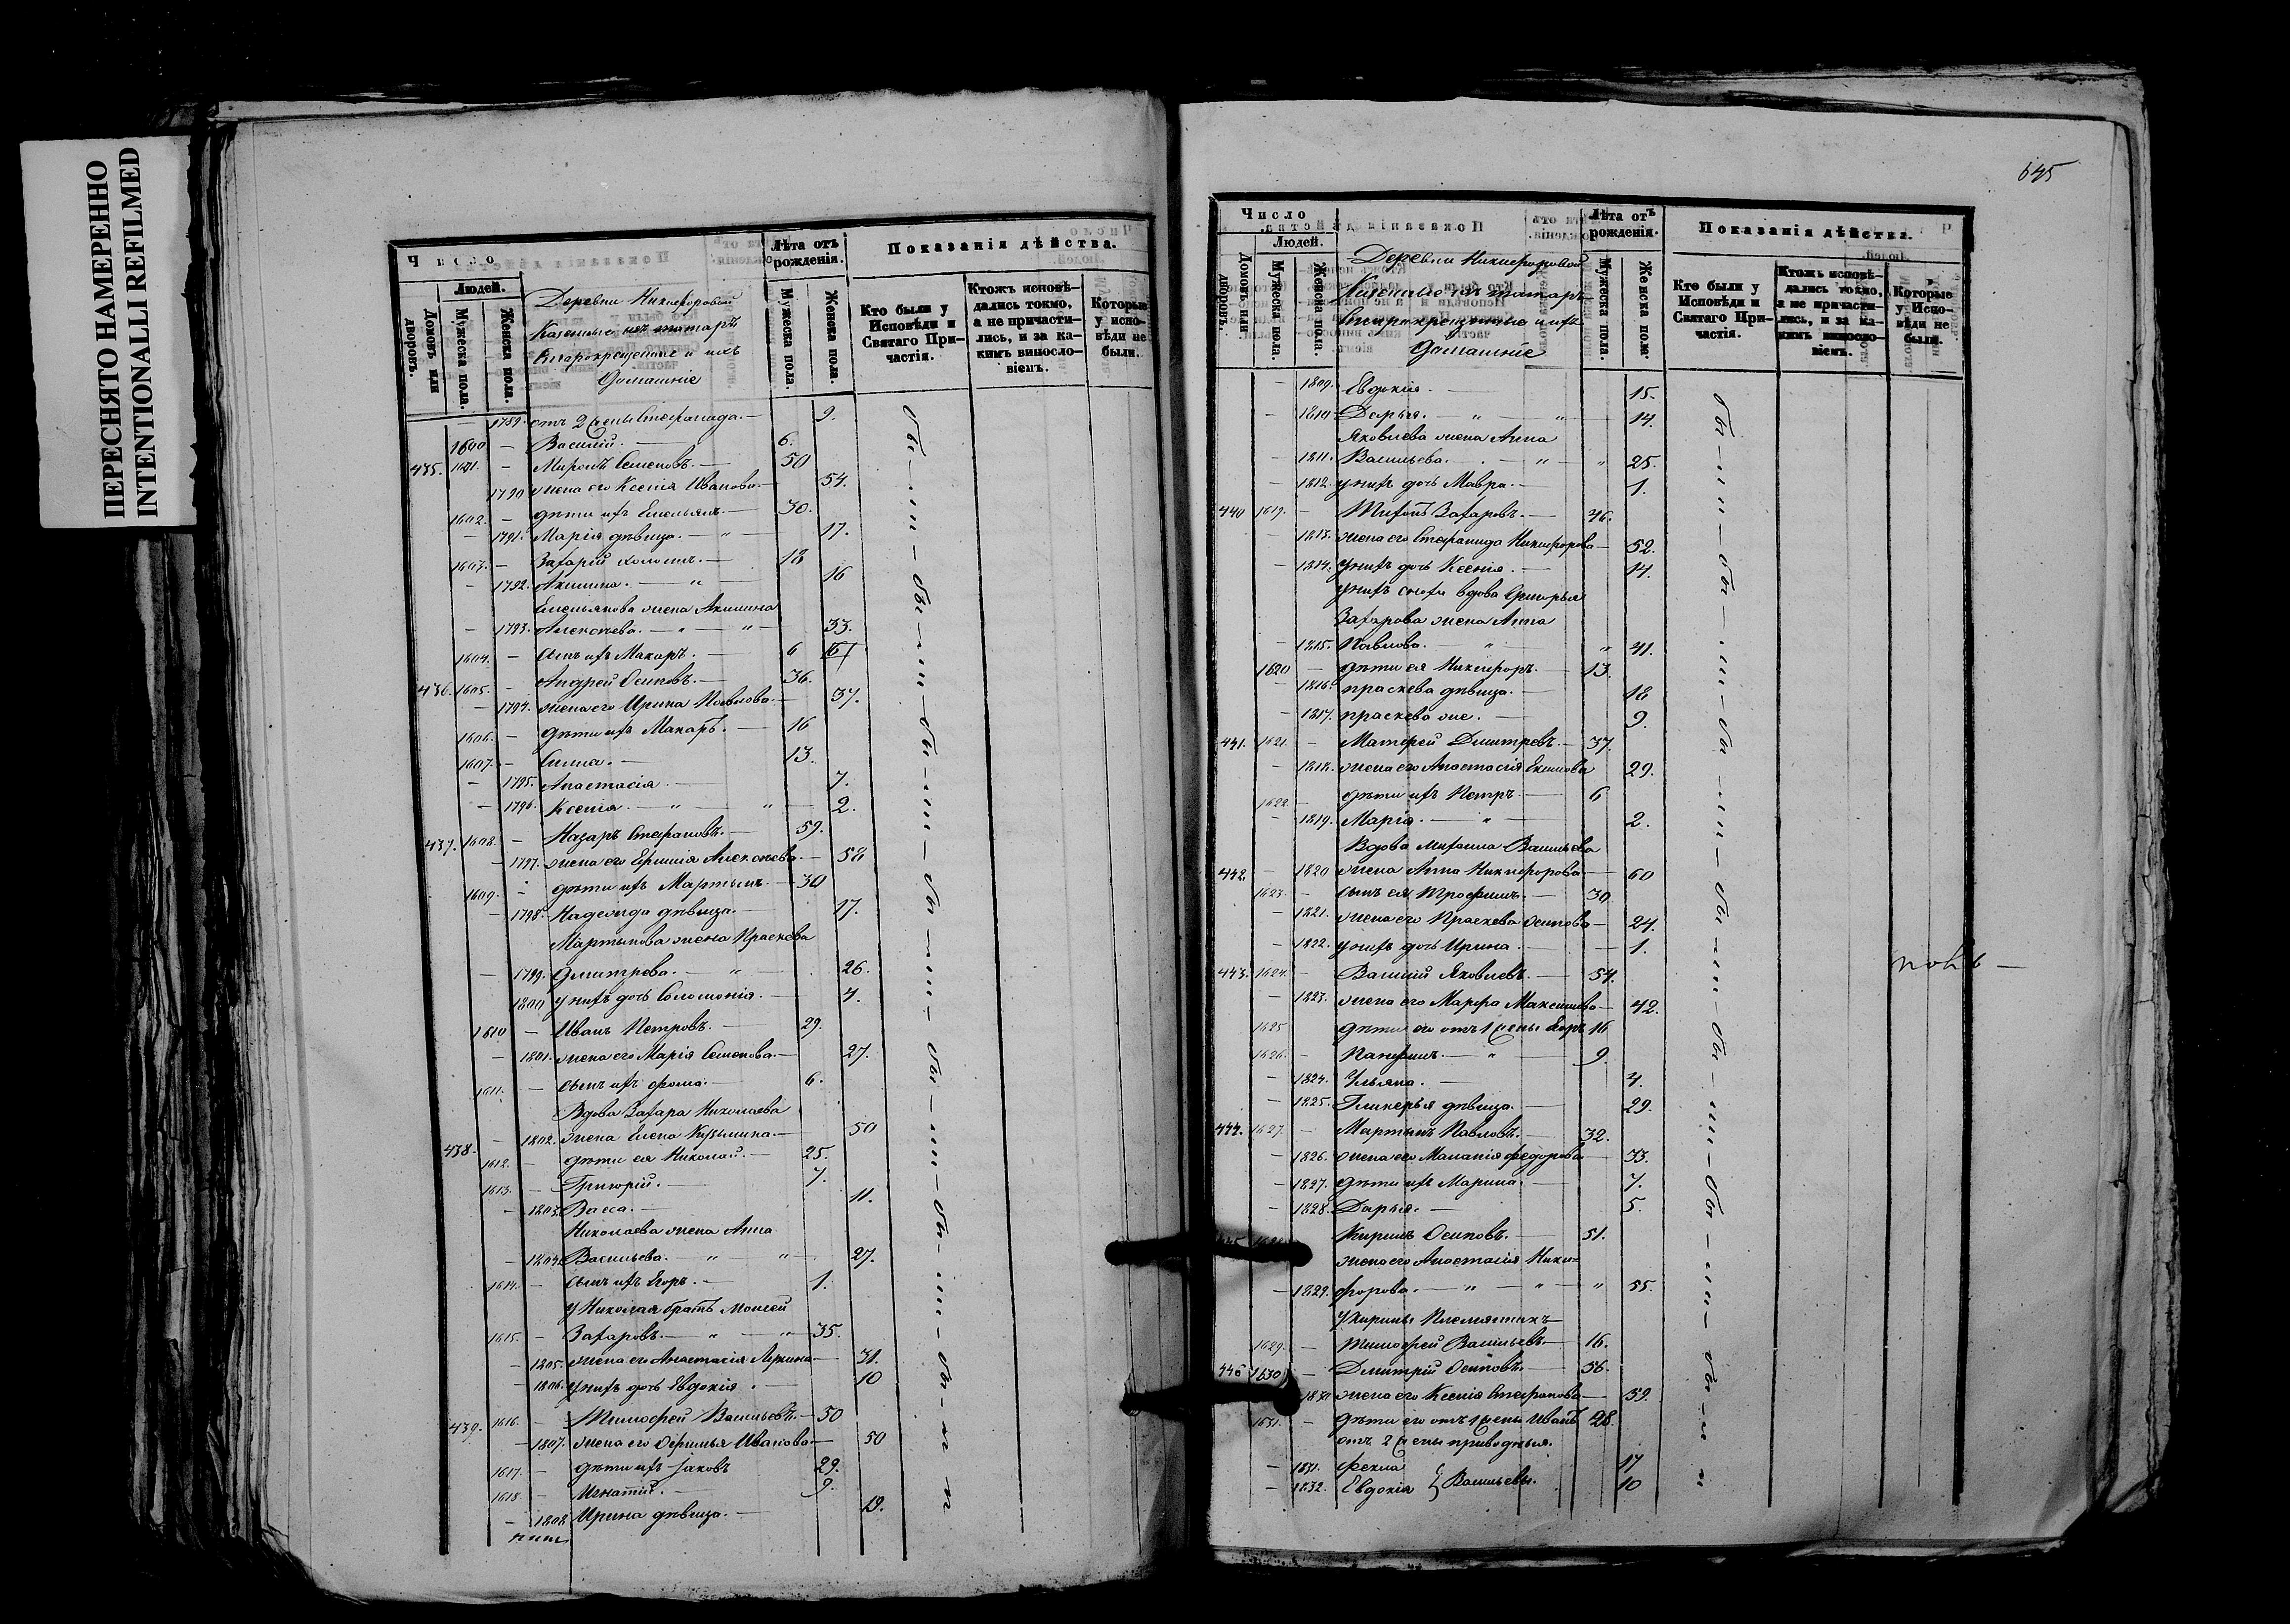 ПЕРЕСНЯТО НАМЕРЕННО
INTENTIONALLI REFILMED
Число
Людей.
Домовъ или дворовъ.
Мужеска пола.
Женска пола.
Деревни Никифоровой
Казенные изъ татаръ
Старокрещенные и ихъ
Домашніе
Лѣта отъ рожденія.
Мужеска пола.
Женска пола.
Показанія дѣйства.
Кто были у Исповѣди и Святаго При-частія.
Ктожъ исповѣ-дались токмо, а не причасти-лись, и за ка-кимъ винослo-віемъ.
Которые у испо-вѣди не были.
— 1789. отъ 2 жены Стефанида. — 9.
1600 — Василій. — 6.
435. 1601. — Миронъ Семеновъ. — 50
1790 жена его Ксенія Иванова — 54.
1602. — дѣти ихъ Емельянъ. — 30.
— 1791. Марія дѣвица. — " — 17.
1603. — Захарій холостъ. — 18
— 1792. Акилина. — " 16
Емельянова жена Акилина
— 1793. Алексѣева. — " — " — 33.
1604. — сынъ ихъ Макаръ. — 6
436. 1605. — Андрей Осиповъ. — 36.
— 1794. жена его Ирина Павлова. — 37.
1606. — дѣти ихъ Макаръ. — 16
1607. — Симма. — 13.
— 1795. Анастасія — 7.
— 1796. Ксенія. — " — " — 2.
437. 1608. — Назаръ Стефановъ. — 59.
— 1797. жена его Ефимія Алексѣева. — 58
1609. — дѣти ихъ Мартынъ. — 30
— 1798. Надежда дѣвица. — 17.
Мартынова жена Праскева
— 1799. Дмитрева. — " — 26.
1800 у нихъ дочь Соломонія. — 4.
1610 — Иванъ Петровъ. — 29.
— 1801. жена его Марія Семенова. — 27.
1611. — сынъ ихъ Фома. — 6.
Вдова Захара Николаева
438. — 1802. жена Елена Кузьмина. — 50
1612. — дѣти ея Николай. — 25.
1613. — Григорій. — 7.
— 1803. Васса. — 11.
Николаева жена Анна
— 1804. Васильева. — " — " — 27.
1614. — сынъ ихъ Егоръ. — 1.
У Николая братъ Моисей
1615. — Захаровъ. — " — " — 35.
— 1805. жена его Анастасія — 31.
— 1806. у нихъ дочь Евдокія. — 10
439. 1616. — Тимофей Васильевъ. — 50
— 1807. жена его Офимья Иванова — 50
1617. — дѣти ихъ Іаковъ 29.
1618. — Игнатій. — 9.
— 1808 Ирина дѣвица. — 19.
645
Число
Людей.
Домовъ или дворовъ.
Мужеска пола.
Женска пола.
Деревни Никифоровой
Казенные изъ татаръ
Старокрещенные и ихъ
Домашніе
Лѣта отъ рожденія.
Мужеска пола.
Женска пола.
Показанія дѣйства.
Кто были у Исповѣди и Святаго При-частія.
Ктожъ исповѣ-дались токмо, а не причасти-лись, и за ка-кимъ винослo-віемъ.
Которые у Испо-вѣди не были.
— 1809. Евдокія. — 15.
— 1810 Дарья. — " — " — 14.
Яковлева жена Анна
— 1811. Васильева. — " — " 25.
— 1812. у нихъ дочь Мавра. — 1.
440 1619. — Титъ Захаровъ. — 46.
— 1813. жена его Стефанида Никифорова — 52.
— 1814. у нихъ дочь Ксенія. — 14.
у нихъ сноха вдова Григорья
Захарова жена Анна
— 1815. Павлова. " — " 41.
1620 — дѣти ея Никифоръ. — 13.
— 1816. Праскева дѣвица. — 18
— 1817. Праскева же. — 9.
441. 1621. — Матфей Дмитревъ. — 37.
— 1818. жена его Анастасія Екимова 29.
1622. — дѣти ихъ Петръ. — 6
— 1819. Марія. — " — 2.
Вдова Васильева
442. — 1820 жена Анна Никифорова — 60
1623. — сынъ ея Трофимъ. — 30
— 1821. жена его Праскева Осипова — 24.
— 1822. у нихъ дочь Ирина. — 1.
443. 1624. — Василій Яковлевъ. — 54.
— 1823. жена его Марфа Максимова — 42.
1625 дѣти его отъ 1 жены Егоръ 16
1626. — Панфилъ. — " — 9.
— 1824. Ульяна. — 4.
— 1825. Гликерья дѣвица. — 29.
444. 1627. — Мартынъ Павловъ. — 32.
— 1826. жена его Маланія Федорова — 33.
— 1827. дѣти ихъ Марина. — 7.
— 1828. Дарья. — 5.
Кирилъ Осиповъ. — 51.
жена его Анастасія Ники=
— 1829. форова. — " — " — " 55.
У Кирилы племянникъ
1629. — Тимофей Васильевъ — 16.
446 1630 — Дмитрій Осиповъ. — 56.
1830 жена его Ксенія Стефанова — 59.
1631. — дѣти его отъ 1 жены Иванъ 28.
отъ 2 жены приводныя.
— 1831. Фекла 17
— 1832. Евдокія } Васильевы. 10